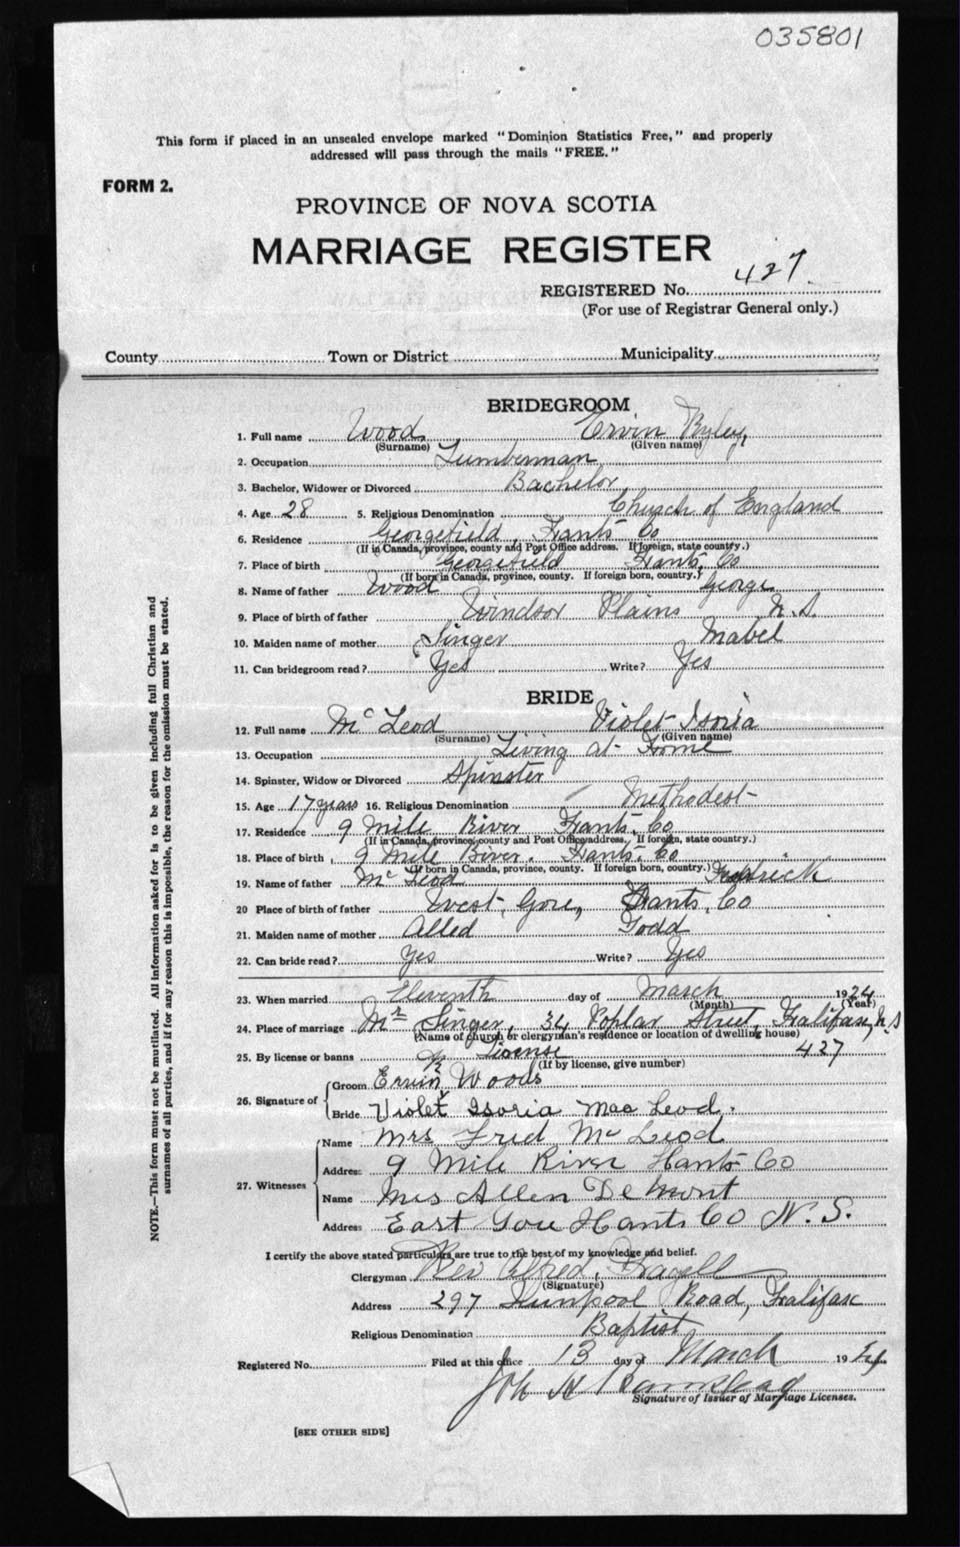 035801
This form if placed in an unsealed envelope marked "Dominion Statistics Free," and properly
addressed will pass through the mails "FREE."
FORM 2.
PROVINCE OF NOVA SCOTIA
MARRIAGE REGISTER
REGISTERED No. 427
(For use of Registrar General only.)
County Town or District Municipality
BRIDEGROOM
1. Full name Wood, Ervin Ryley,
(Surname) (Given name)
2. Occupation Lumberman
3. Bachelor, Widower or Divorced Bachelor
4. Age 28 5. Religious Denomination Church of England
6. Residence Georgefield, Hants Co
(If in Canada, province, county and Post Office address. If foreign, state country.)
7. Place of birth Georgefield Hants, Co
(If born in Canada, province, county. If foreign born, country.)
8. Name of father Wood George
9. Place of birth of father Windsor Plains N.S.
10. Maiden name of mother Singer Mabel
11. Can bridegroom read? Yes Write? Yes
BRIDE
12. Full name McLeod Violet Isoria
(Surname) (Given name)
13. Occupation Living at Home
14. Spinster, Widow or Divorced Spinster
15. Age 17 years 16. Religious Denomination Methodest
17. Residence 9 Mile River Hants, Co
(If in Canada, province, county and Post Office address. If foreign, state country.)
18. Place of birth 9 Mile River. Hants. Co
(If born in Canada, province, county. If foreign born, country.)
19. Name of father McLeod Fredrick
20 Place of birth of father West, Gore, Hants, Co
21. Maiden name of mother Alled Todd
22. Can bride read? Yes Write? Yes
23. When married Eleventh day of March 1924
(Month) (Year)
24. Place of marriage Mr Singer, 34 Poplar Street, Halifax, N.S
(Name of church or clergyman's residence or location of dwelling house)
25. By license or banns By License 427
(If by license, give number)
26. Signature of
Groom Ervin Woods
Bride Violet Isoria Mac Leod.
27. Witnesses
Name Mrs Fred McLeod
Address 9 Mile River Hants Co
Name Mrs Allen DeMont
Address East Gore Hants Co N.S.
I certify the above stated particulars are true to the best of my knowledge and belief.
Clergyman Rev Alfred,
(Signature)
Address 297 Road, Halifax
Religious Denomination Baptist
Registered No. Filed at this office 13 day of March 1924
Signature of Issuer of Marriage Licenses.
[SEE OTHER SIDE]
NOTE.—This form must not be mutilated. All information asked for is to be given including full Christian and
surnames of all parties, and if for any reason this is impossible, the reason for the omission must be stated.